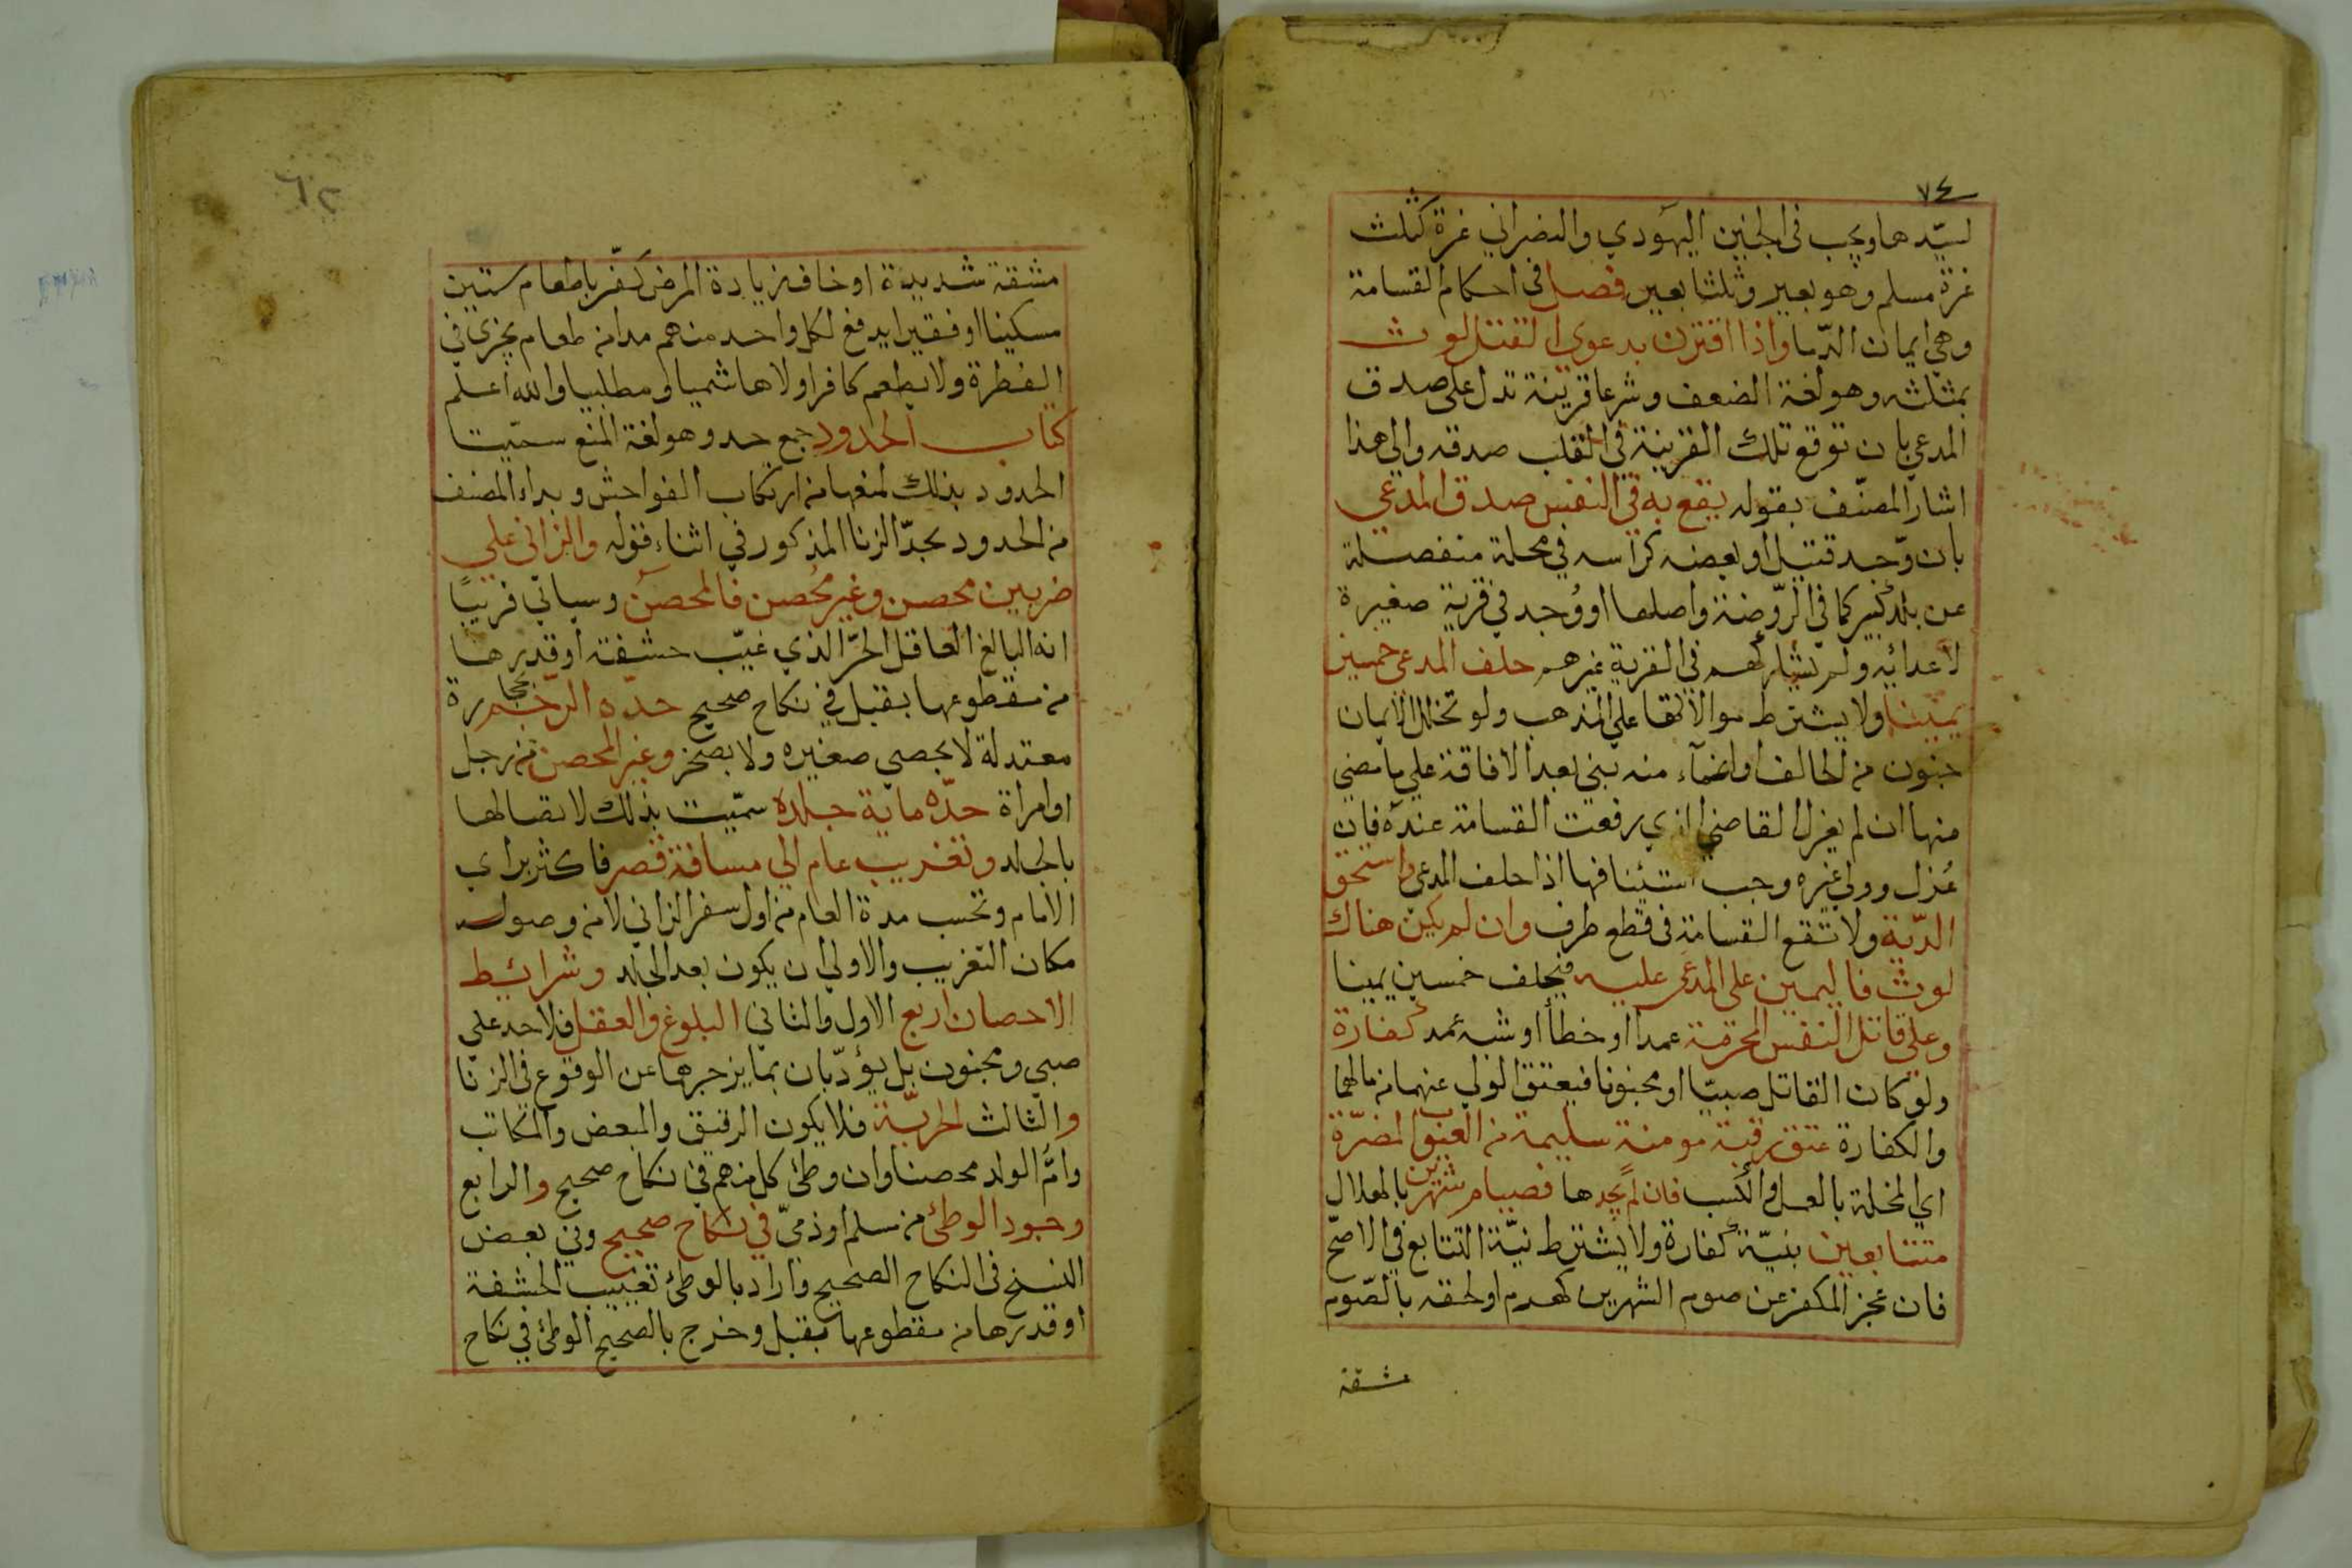 ٧٤
لسيّدها ويجب في الجنين اليهودي والنصراني غرة كثلث
غرة مسلم وهو بعير وثلثا بعير فصل في احكام القسامة
وهي ايمان الدّما واذا اقترن بدعوى القتل لوث
بمثلثه وهو لغة الضعف وشرعا قرينة تدل على صدق
المدعي بان توقع تلك القرينة في القلب صدقه والى هذا
اشار المصنّف بقوله يقع به في النفس صدق المدعي
بان وّجد قتيل او بعضه كراسه في محلة منفصلة
عن بلد كبير كما في الرّوضة واصلها او وُجد في قرية صغيرة
لأعدائه ولم يشاركهم في القرية غيرهم حلف المدعي خمسين
يمينا ولا يشترط موالاتها على المذهب ولو تخلل الأيمان
جنون من الحالف او اغمآء منه بنى بعد الافاقة علي ما مضى
منها ان لم يعزل القاضي الذي رفعت القسامة عنده فان
عُزل وولي غيره وجب استئنافها اذا حلف المدعي واستحق
الدّية ولا تقع القسامة في قطع طرف وان لم يكن هناك
لوث فاليمين على المدعى عليه فيحلف خمسين يمينا
وعلي قاتل النفس المحرمة عمدا او خطأ او شبه عمد كفارة
ولو كان القاتل صبيّا او مجنونا فيعتق الولي عنهما من مالهما
والكفارة عتق رقبة مومنة سليمة من العيوب المضرّة
اي المخلة بالعمل والكسب فان لم يجدها فصيام شهرين بالهلال
متتابعين بنيّة كفارة ولا يشترط نيّة التتابع في الاصحّ
فان عجز المكفر عن صوم الشهرين لهرم او لحقه بالصّوم
مشقة
٦٢
مشقة شديدة او خاف زيادة المرض كفّر باطعام ستين
مسكينا او فقيرا يدفع لكل واحد منهم مدا من طعام يجزي في
الفطرة ولا يطعم كافرا ولا هاشميا ومطلبيا والله اعلم
كتاب الحدود جمع حد وهو لغة المنع سمّيت
الحدود بذلك لمنعها من ارتكاب الفواحش وبداء المصنف
من الحدود بحدّ الزنا المذكور في اثناء قوله والزاني علي
ضربين محصن وغير محُصن فالمحصن وسياتي قريبًا
انه البالغ العاقل الحرّ الذي غيّب حشفة او قدرها
من مقطوعها بقبل في نكاح صحيح حدّه الرّجم بحجارة
معتدلة لا بحصي صغيره ولا بصخر وغير المحصن من رجل
او امراة حدّه ماية جلدة سمّيت بذلك لاتصالها
بالجلد وتغريب عام الي مسافة قصر فاكثر براي
الامام وتحسب مدة العام من اول سفر الزاني لا من وصوله
مكان التغريب والاولي ان يكون بعد الجلد وشرائط
الاحصان اربع الاول والثاني البلوغ والعقل فلا حد علي
صبي ومجنون بل يؤدّبان بما يزجرهما عن الوقوع في الزنا
والثالث الحريّة فلا يكون الرقيق والمبعض والمكاتب
وامُّ الولد محصنا وان وطئ كل منهم في نكاح صحيح والرابع
وجود الوطئ من مسلم او ذميّ في نكاح صحيح وفي بعض
النسخ في النكاح الصحيح واراد بالوطئ تغييب الحشفة
او قدرها من مقطوعها بقبل وخرج بالصحيح الوطئ في نكاح